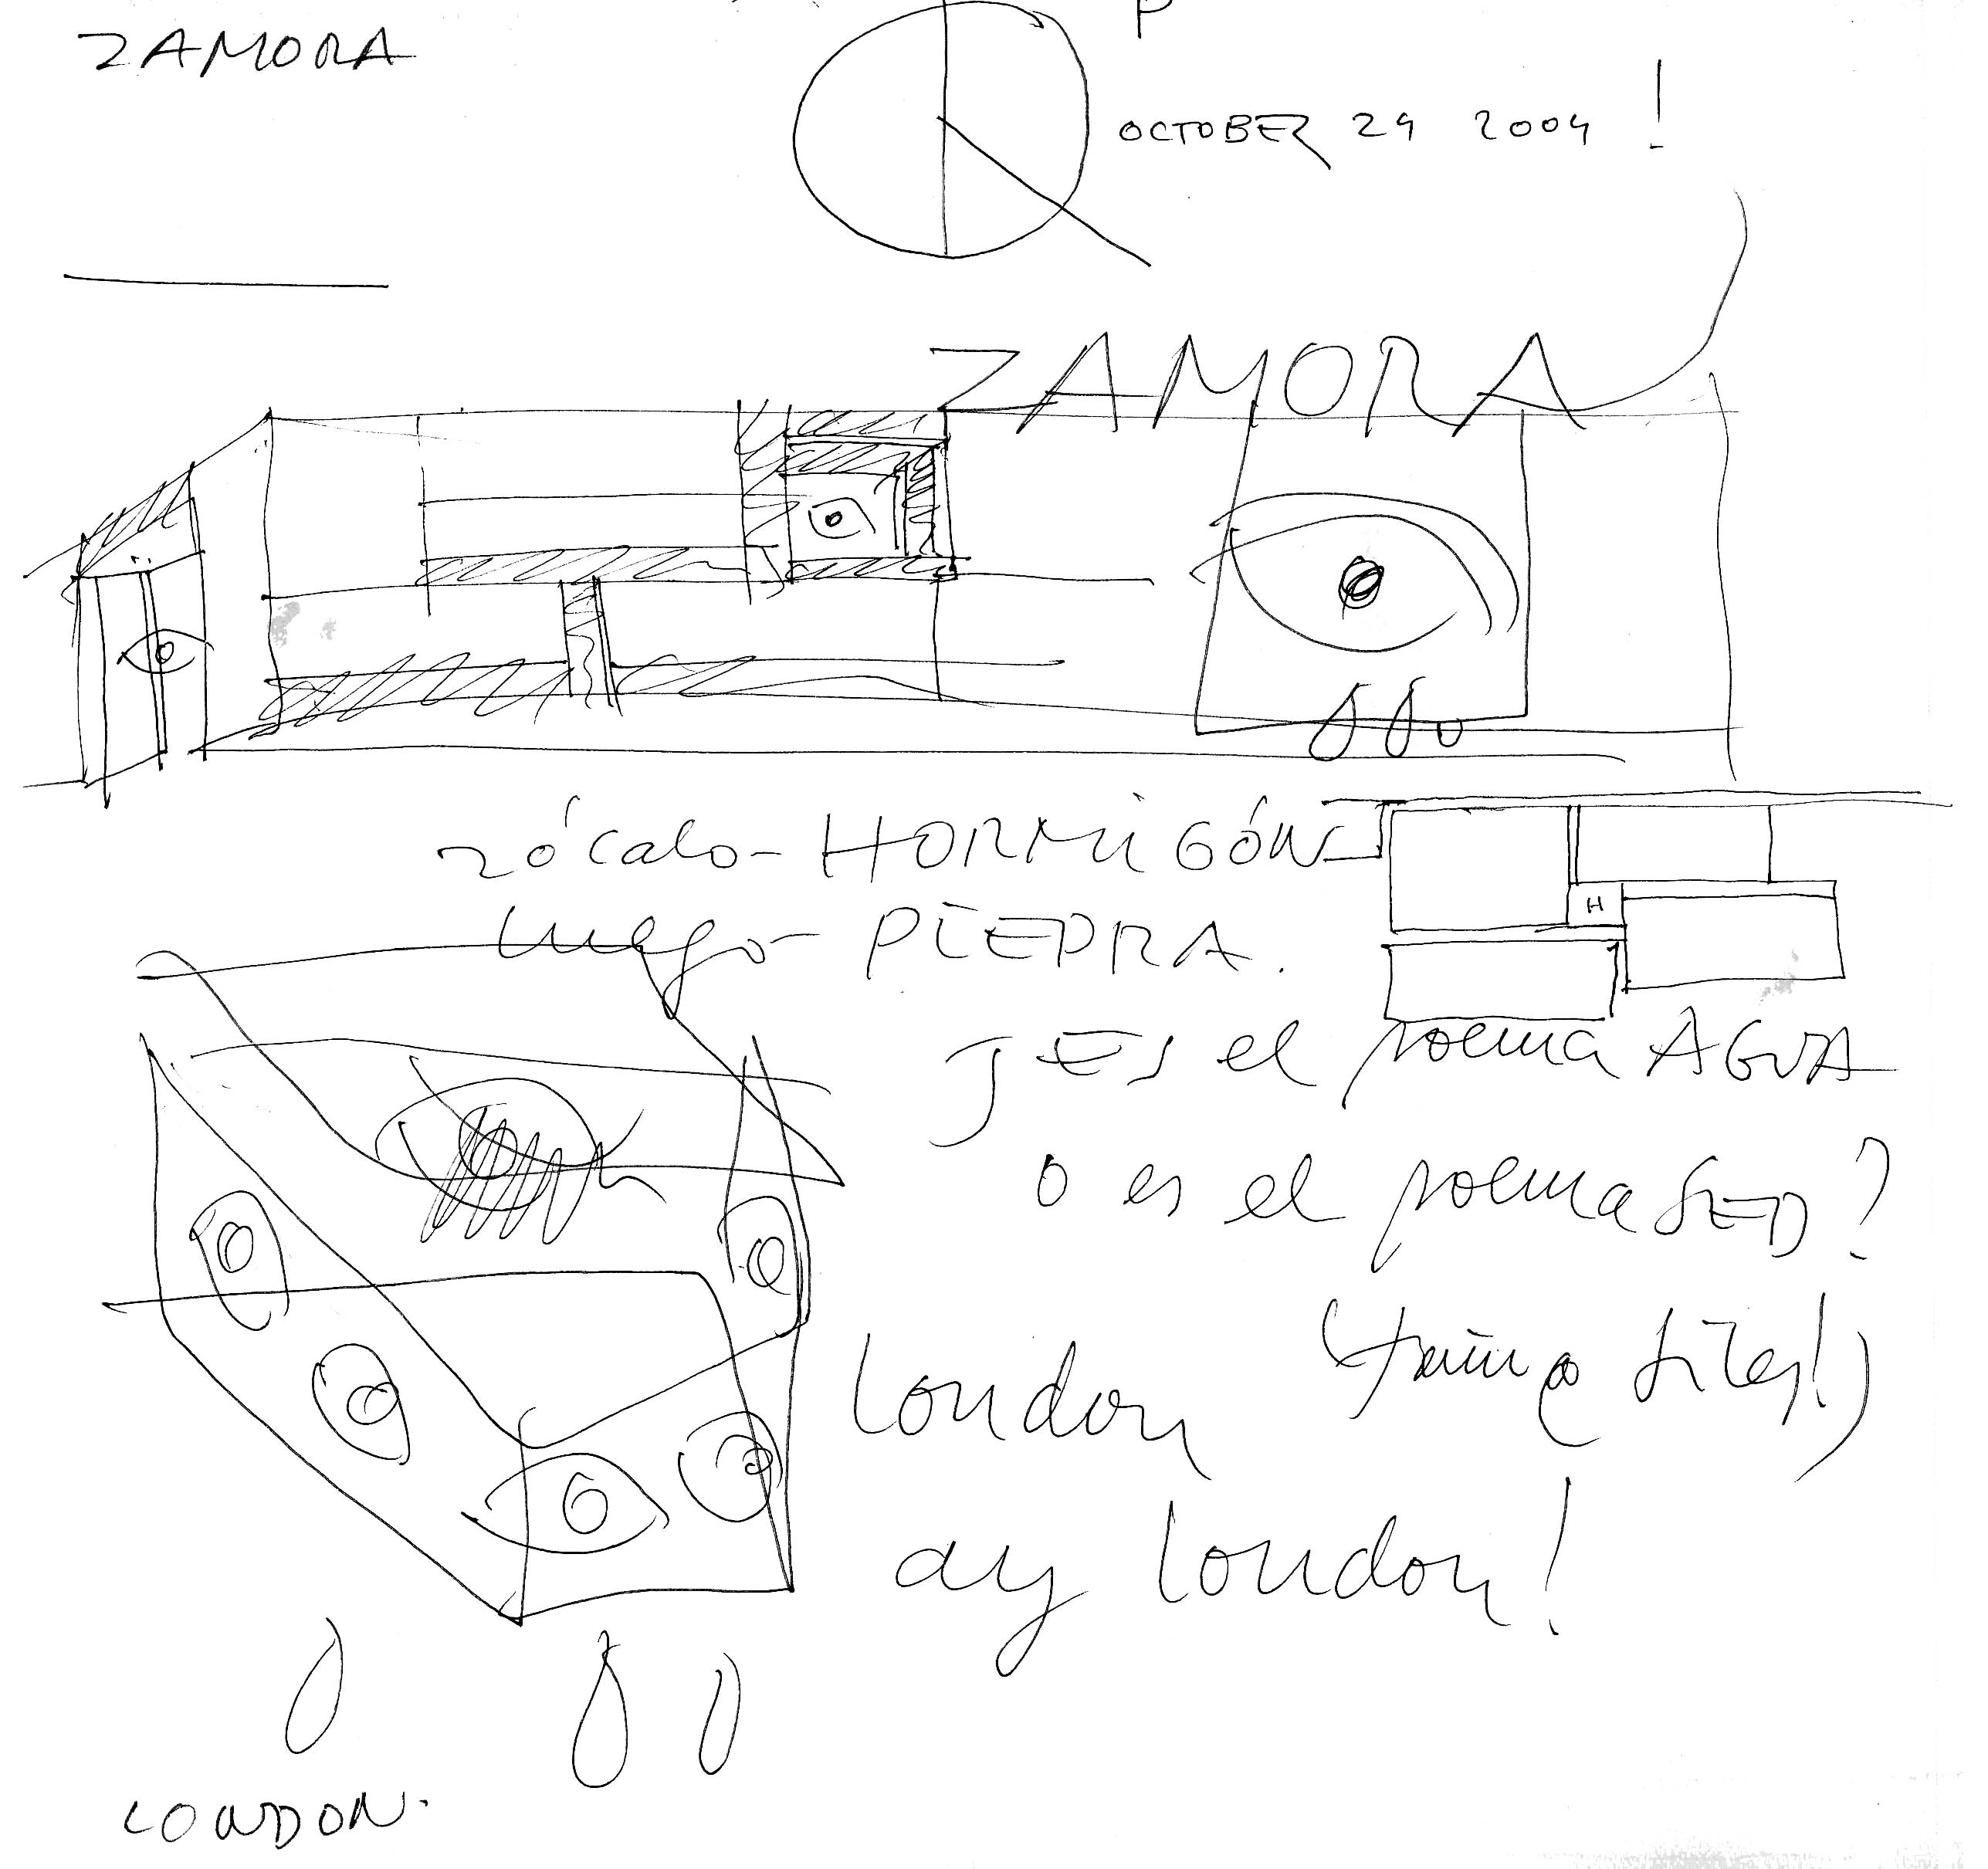 ZAMORA
P
OCTOBER 29 2004 !
ZAMORA
zócalo - HORMIGÓN
luego - PIEDRA.
H
¿ES el poema AGUA
o es el poema SED?
London
ay London!
LONDON.